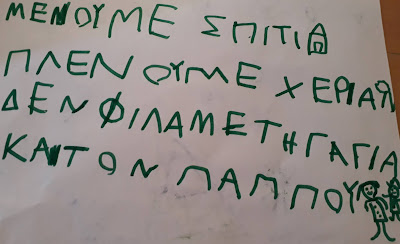 ΜΕΝΟΥΜΕ ΣΠΙΤΙ
ΠΛΕΝΟΥΜΕ ΧΕΡΙΑ
ΔΕΝ ΦΙΛΑΜΕ ΤΗ ΓΑΓΙΑ
ΚΑΙ ΤΟΝ ΠΑΠΠΟΥ